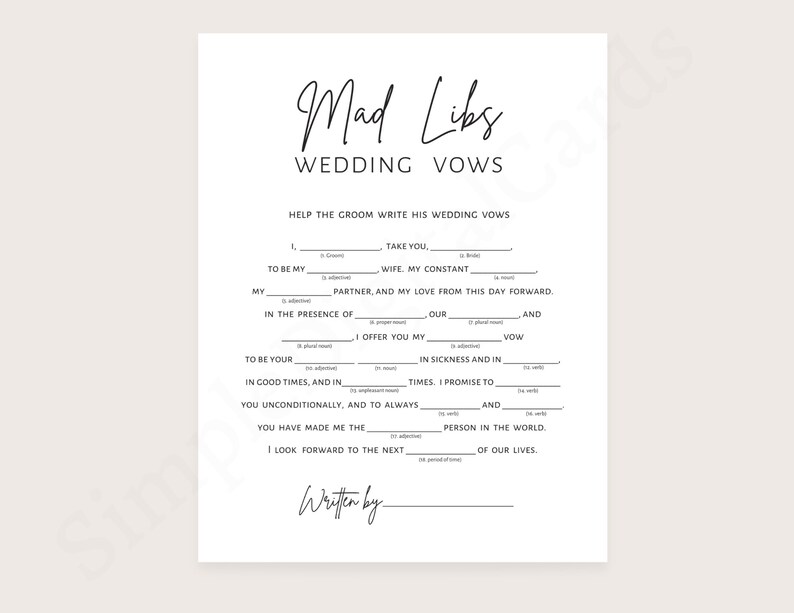 Mad Libs
WEDDING VOWS
HELP THE GROOM WRITE HIS WEDDING VOWS
I, ________________, TAKE YOU, ________________,
(1. Groom) (2. Bride)
TO BE MY ______________, WIFE. MY CONSTANT _____________,
(3. adjective) (4. noun)
MY _____________ PARTNER, AND MY LOVE FROM THIS DAY FORWARD.
(5. adjective)
IN THE PRESENCE OF ______________, OUR ______________, AND
(6. proper noun) (7. plural noun)
______________, I OFFER YOU MY _______________ VOW
(8. plural noun) (9. adjective)
TO BE YOUR ____________ ____________ IN SICKNESS AND IN ___________,
(10. adjective) (11. noun) (12. verb)
IN GOOD TIMES, AND IN_____________ TIMES. I PROMISE TO _____________
(13. unpleasant noun) (14. verb)
YOU UNCONDITIONALLY, AND TO ALWAYS ____________ AND ____________.
(15. verb) (16. verb)
YOU HAVE MADE ME THE _______________ PERSON IN THE WORLD.
(17. adjective)
I LOOK FORWARD TO THE NEXT ______________ OF OUR LIVES.
(18. period of time)
Written by__________________________
SimplyDigitalCards